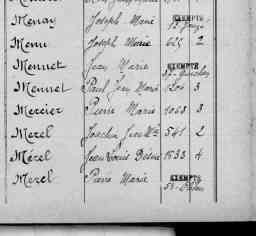 Menay Joseph Marie EXEMPTÉ
Menu Joseph Marie 625 2
Mennet Jean Marie EXEMPTÉ
Mennet Paul Jean Marie 1204 3
Mercier Pierre Marie 1063 3
Merel Joachim Jean Mie 541 2
Mérel Jean Louis Désiré 1533 4
Merel Pierre Marie EXEMPTÉ